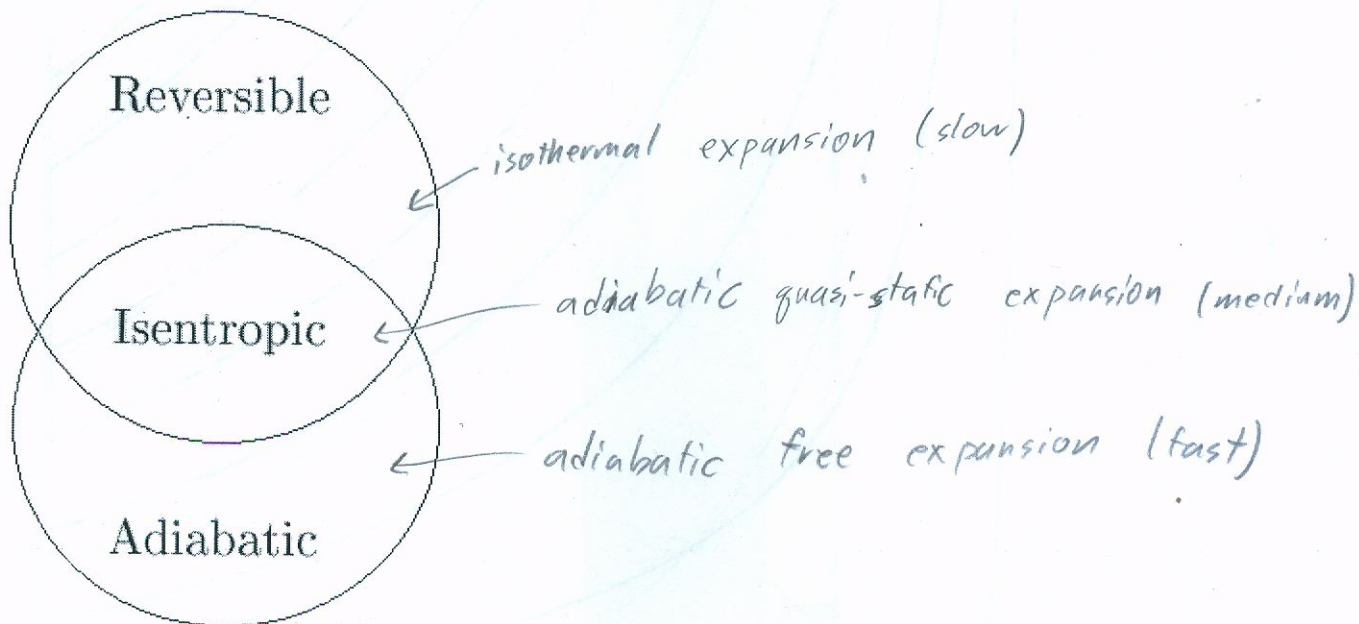 Reversible
isothermal expansion (slow)
adiabatic quasi-static expansion (medium)
Isentropic
adiabatic free expansion (fast)
Adiabatic